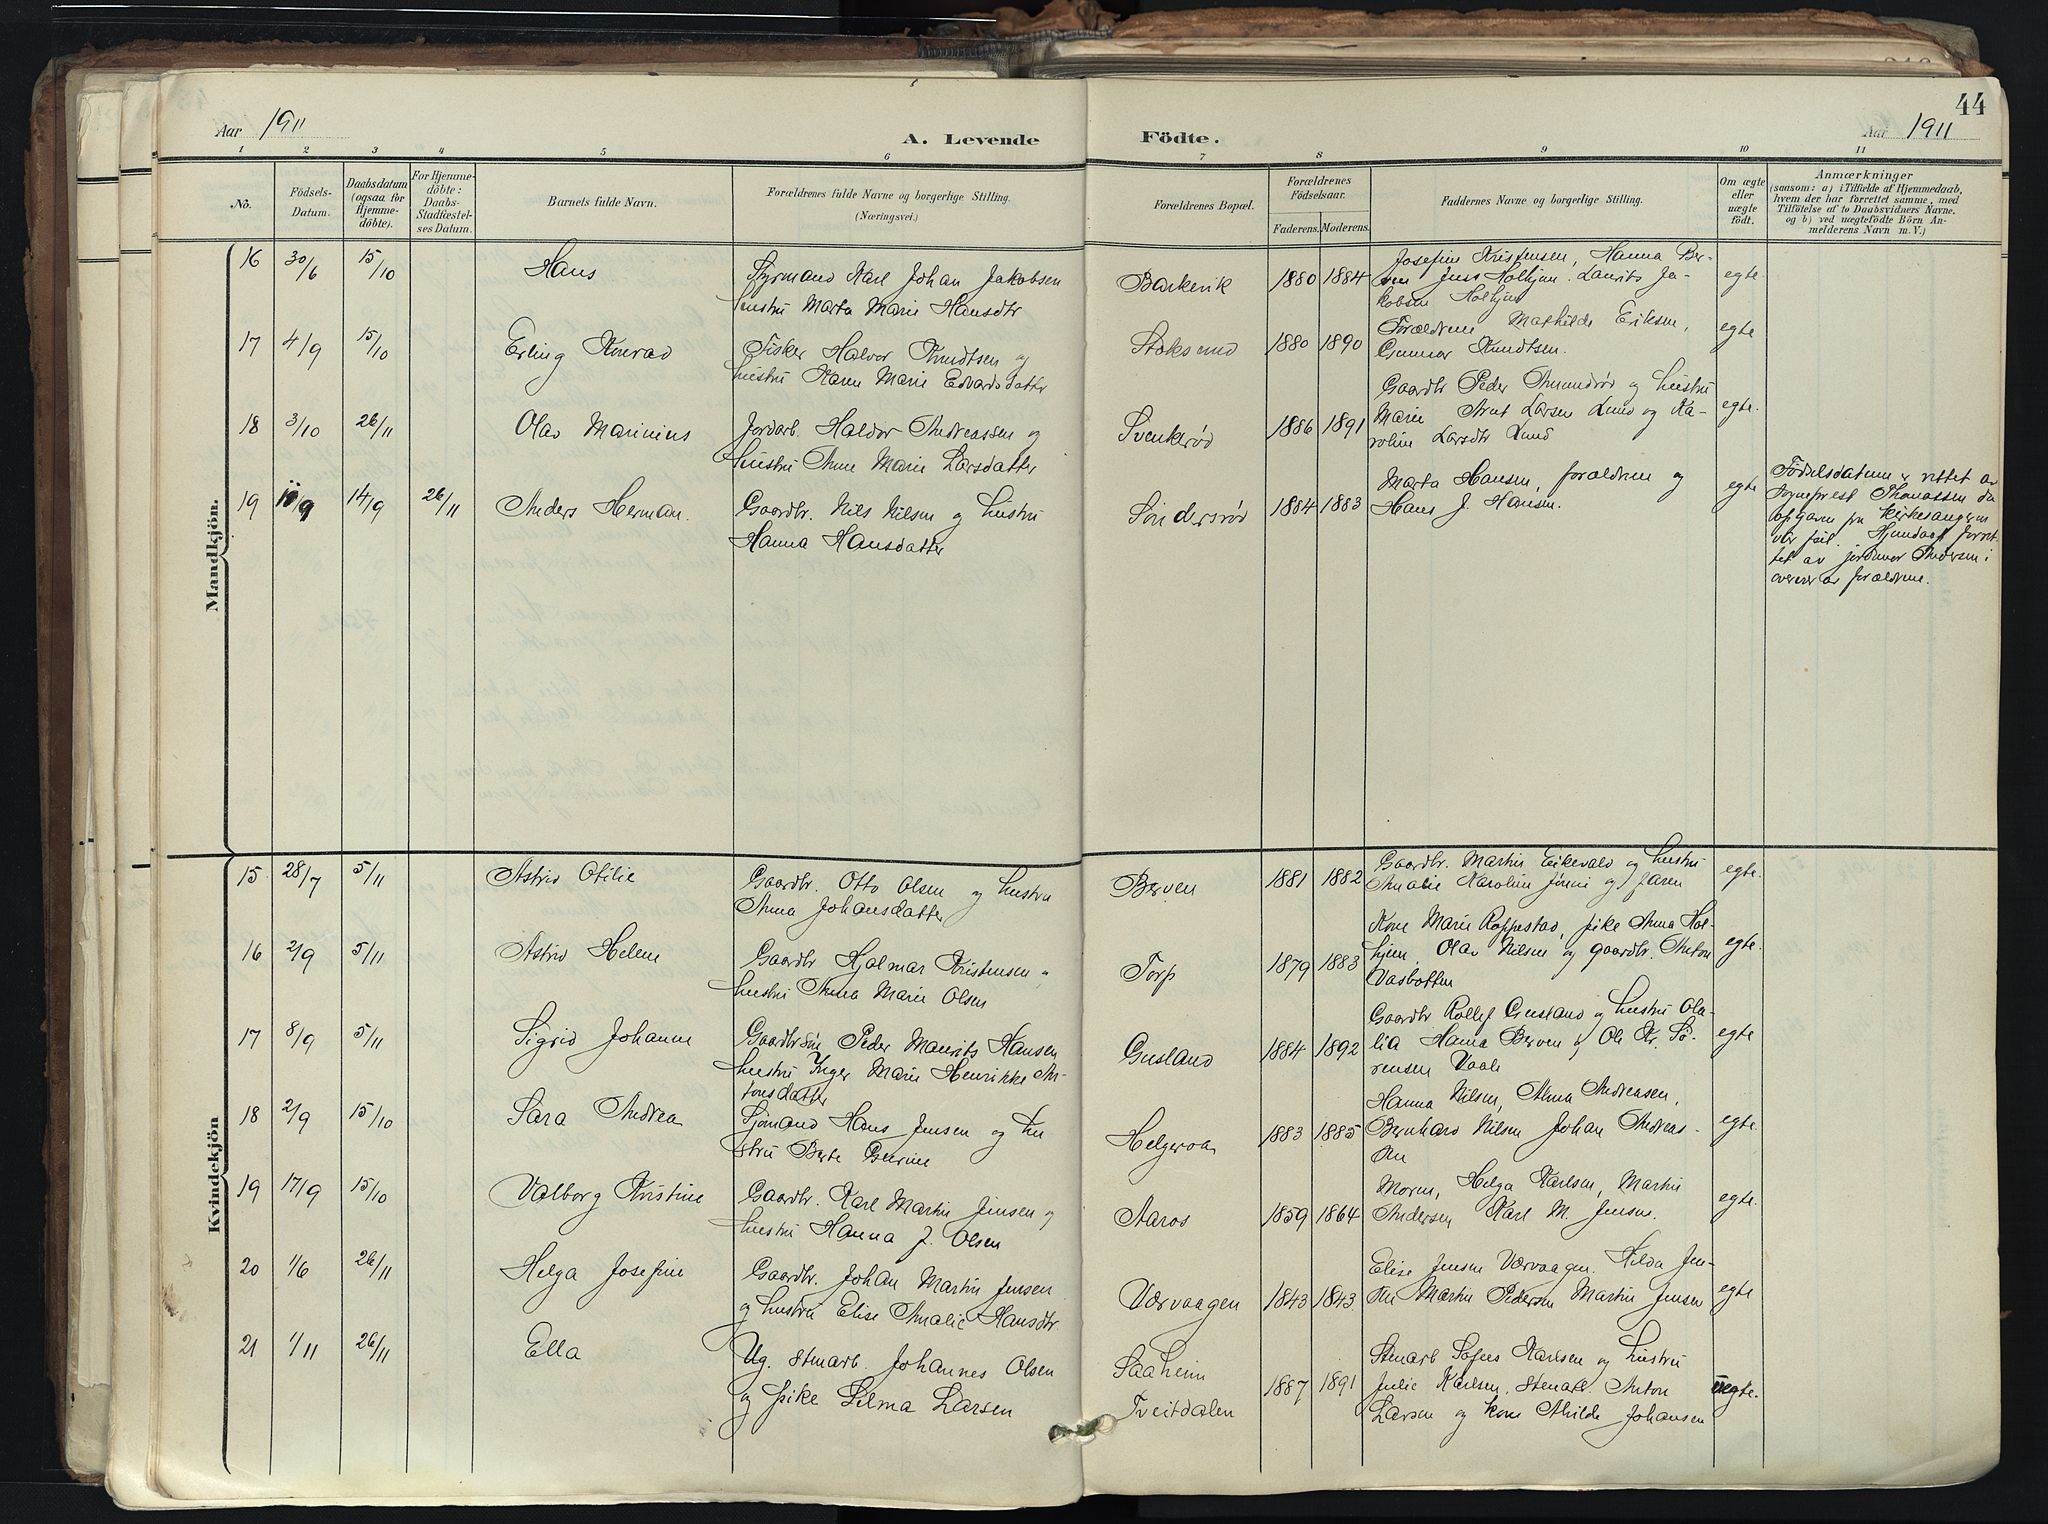 44
Aar 1911
A. Levende Födte.
Aar 1911
1 2 3 4 5 6 7 8 9 10 11
No.
Födsels-Datum.
Daabsdatum (ogsaa for Hjemmedöbte).
For Hjemmedöbte: Daabs-Stadfæstelses Datum.
Barnets fulde Navn.
Forældrenes fulde Navne og borgerlige Stilling.
(Næringsvei.)
Forældrenes Bopæl.
Forældrenes Födselsaar.
Faderens. Moderens.
Faddernes Navne og borgerlige Stilling.
Om ægte eller uægte födt.
Anmærkninger
(saasom: a) i Tilfælde af Hjemmedaab,
hvem der har forrettet samme, med
Tilföielse af to Daabsvidners Navne.
og b) ved uægtefödte Börn Anmelderens Navn m. V.)
Mandkjön.
16 30/6 15/10 Hans
Styrmand Karl Johan Jakobsen
hustru Marta Marie Hansdtr
Barkevik 1880 1884
Josefine Kristensen, Hanna Ber-
ven Jens Holhjem. Laurits Ja-
kobsen Holhjem
egte.
17 4/9 15/10 Erling Konrad
Fisker Halvor Knudtsen og
hustru Karen Marie Edvardsdatter
Stoksund 1880 1890
Forældrene Mathilde Eriksen,
Gunnar Knudtsen.
egte
18 3/10 26/11 Olav Marinius
Jordarb. Haldor Andreassen og
hustru Anne Marie Larsdatter
Svenkerød 1886 1891
Gaardbr Peder Amundrød og hustru
Marie Arnt Larsen Lund og Ka-
roline Larsdtr Lund
egte.
19 10/9 14/9 26/11 Anders Herman.
Gaardbr. Nils Nilsen og hustru
Hanna Hansdatter
Søndersrød 1884 1883
Marta Hansen, forældrene og
Hans J. Hansen.
egte
Fødselsdatum er rettet av
sogneprest Thomassen da
opgaven fra kirkesangeren
var feil. Hjemdaap forret-
tet av jordmor Andersen i
overvær av forældrene.
Kvindekjön
15 28/7 5/11 Astrid Otilie
Gaardbr. Otto Olsen og hustru
Anna Johansdatter
Berven 1881 1882
Gaardbr. Martin Eikevald og hustru
Amalie Karoline og
egte.
16 2/9 5/11 Astrid Helene
Gaardbr Hjalmar Kristensen og
hustru Anna Marie Olsen
Torp 1879 1883
Kone Marie Roppestad, pike Anna Hol-
hjem, Olav Nilsen og gaardbr. Anton
Vasbotten
egte.
17 8/9 5/11 Sigrid Johanne
Gaardbrsøn Peder Maurits Hansen
hustru Inger Marie Henrikke An-
tonsdatter
Gusland 1884 1892
Gaardbr Rollef Gusland og hustru Ola-
lia Hanna Berven og Ole Kr. Sø-
rensen Vaale
egte
18 2/9 15/10 Sara Andrea
Sjømand Hans Jensen og hu
stru Berte Gurine
Helgeroa 1883 1885
Hanna Nilsen, Anna Andreasen,
Bernhard Nilsen Johan Andreas-
sen
egte.
19 17/9 15/10 Valborg Kristine
Gaardbr. Karl Martin Jensen og
hustru Hanna J. Olsen
Aaros 1859 1864
Moren, Helga Karlsen, Martin
Andersen Karl M. Jensen.
egte.
20 1/6 26/11 Helga Josefine
Gaardbr. Johan Martin Jensen
og hustru Elise Amalie Hansdtr.
Værvaagen 1843 1843
Elise Jensen Værvaagen. Hilda Jen-
sen Martin Pedersen Martin Jensen
egte
21 1/11 26/11 Ella
Ug. stenarb. Johannes Olsen
og pike Selma Larsen
Saaheim
Tveitdalen 1887 1891
Stenarb Sofus Karlsen og hustru
Julie Karlsen. Stenarb. Anton
Larsen og kone Athilde Johansen
uegte.